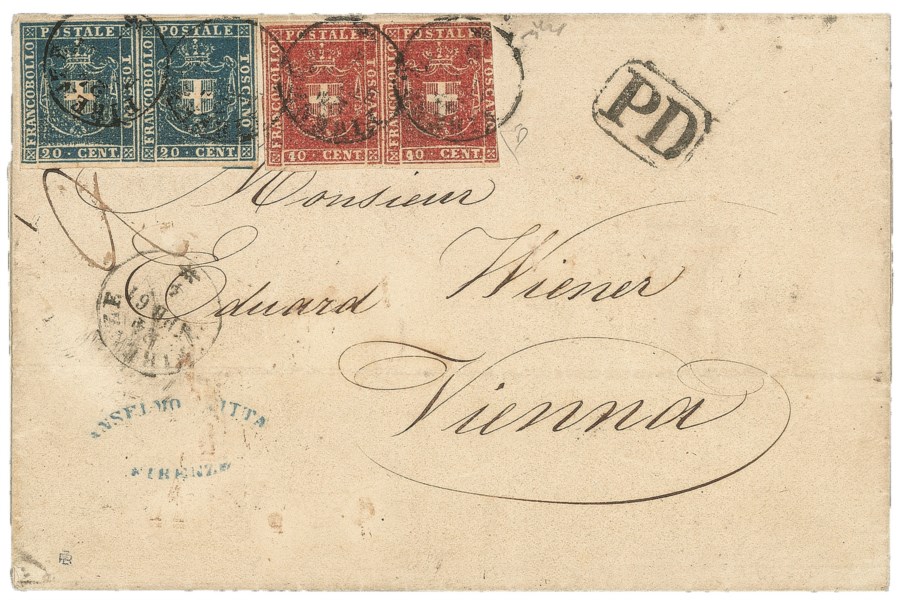 FRANCOBOLLO POSTALE TOSCANO
20 · CENT
FRANCOBOLLO POSTALE TOSCANO
20 · CENT
FRANCOBOLLO POSTALE TOSCANO
40 · CENT
FRANCOBOLLO POSTALE TOSCANO
40 · CENT
PD
Monsieur
Eduard Wiener
Vienna
ANSELMO
FIRENZE